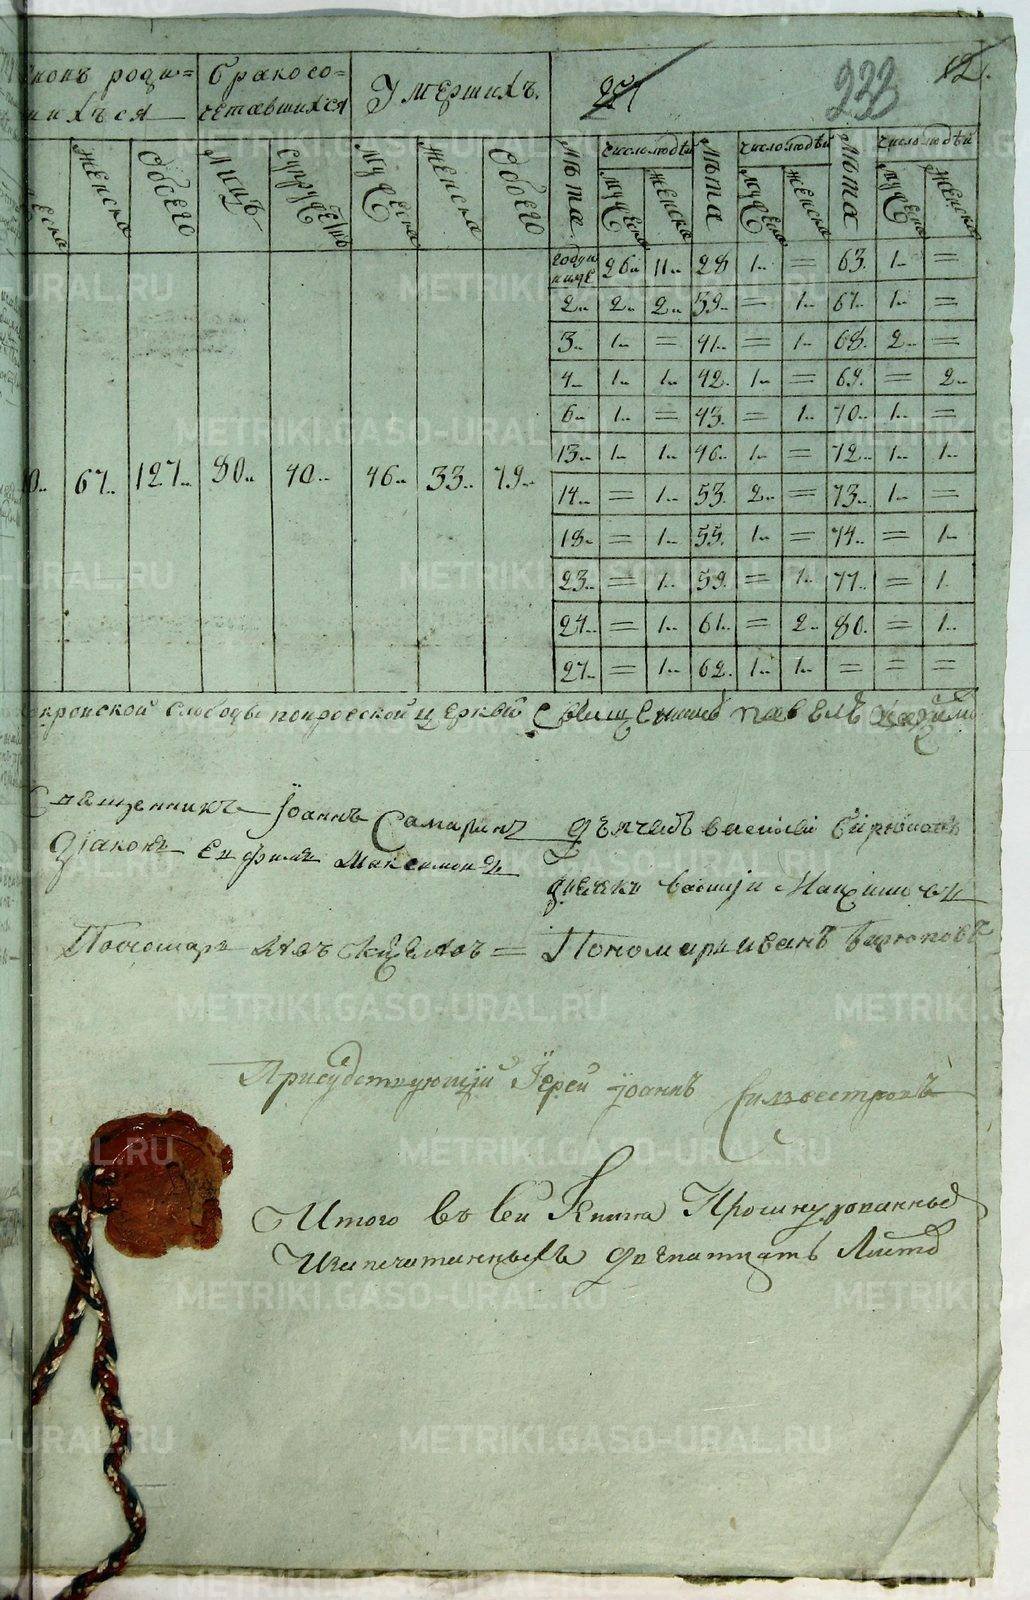 родив=
шихся
бракосо=
четавшихся
Умершихъ.
233
12.
женска
Обоего
Лицъ
супружество
мужеска
женска
Обоего
Лѣта
число людей
мужеска
женска
Лѣта
число людей
мужеска
женска
Лѣта
число людей
мужеска
женска
26 11 28 1 = 63 1 =
2 2 2 39 = 1 67 1 =
3 1 = 41 = 1 68 2 =
4 1 1 42 1 = 69 = 2
6 1 = 43 = 1 70 1 =
13 1 1 46 1 = 72 1 1
14 = 1 53 2 = 73 1 =
18 = 1 55 1 = 74 = 1
23 = 1 59 = 1 77 = 1
24 = 1 61 = 2 80 = 1
27 = 1 62 1 1 = = =
67 127 80 40 46 33 79
слободы покровской церкви священникъ павелъ
Священникъ Іоаннъ Самаринъ
Дьячекъ василей Бирюковъ
Діаконъ Ефимъ Максимовъ
дьячекъ василіи Максимовъ
Пономарь
Пономарь иванъ Бирюковъ
Присудствующій Іерей Іоаннъ Сильвестровъ
Итого въ сей Книге Прошнурованныхъ
Изапечатанныхъ двенатцать Листовъ
METRIKI.GASO-URAL.RU